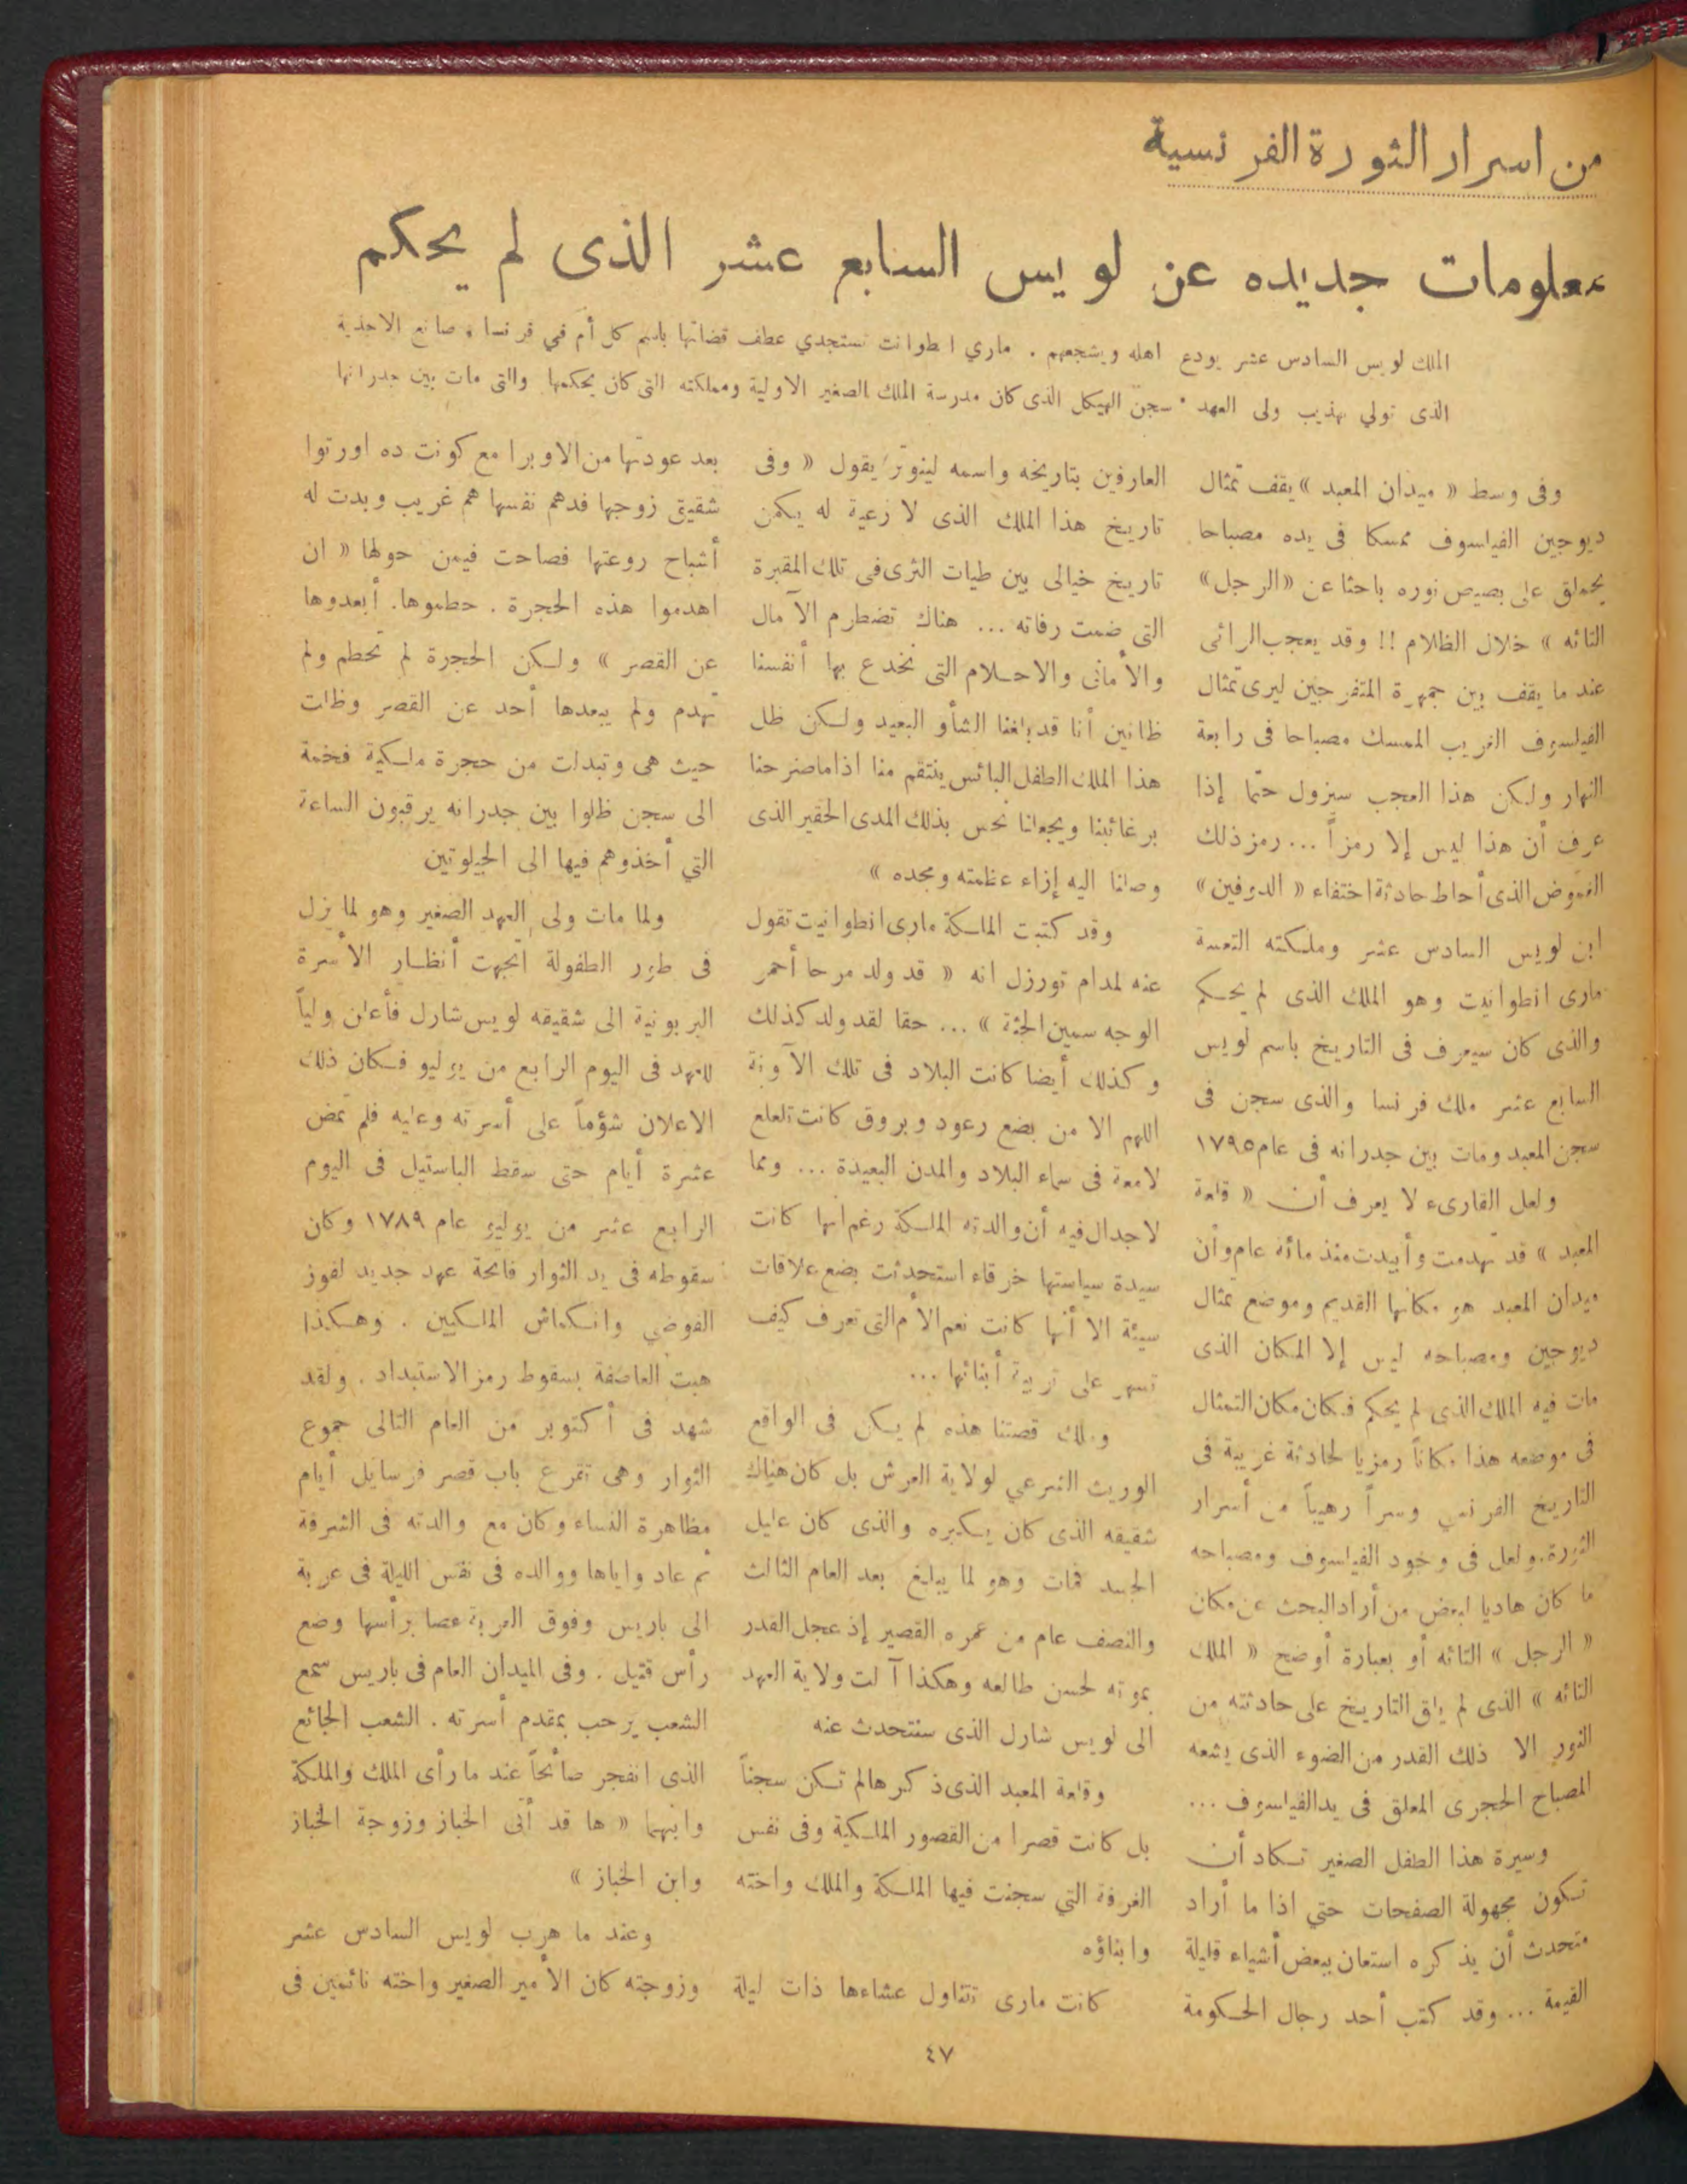 من اسرار الثورة الفرنسية
معلومات جديده عن لويس السابع عشر الذى لم يحكم
الملك لويس السادس عشر يودع اهله ويشجعهم . ماري انطوانت تستجدي عطف قضاتها باسم كل أم في فرنسا . صانع الاحذية
الذى تولي تهذيب ولى العهد . سجن الهيكل الذى كان مدرسة الملك الصغير الاولية ومملكته التى كان يحكمها والتى مات بين جدرانها
وفى وسط « ميدان المعبد » يقف تمثال
ديوجين الفيلسوف ممسكا فى يده مصباحا
يحملق على بصيص نوره باحثا عن «الرجل»
التائه » خلال الظلام !! وقد يعجب الرائى
عند ما يقف بين جمهرة المتفرجين ليرى تمثال
الفيلسوف الغريب الممسك مصباحا فى رابعة
النهار ولكن هذا العجب سيزول حتما إذا
عرف أن هذا ليس إلا رمزاً ... رمز ذلك
الغموض الذى أحاط حادثة اختفاء « الدوفين»
ابن لويس السادس عشر وملكته التعسة
مارى انطوانيت وهو الملك الذى لم يحكم
والذى كان سيعرف فى التاريخ باسم لويس
السابع عشر ملك فرنسا والذى سجن فى
سجن المعبد ومات بين جدرانه فى عام ١٧٩٥
ولعل القارىء لا يعرف أن « قلعة
المعبد » قد تهدمت وأبيدت منذ مائة عام وأن
ميدان المعبد هو مكانها القديم وموضع تمثال
ديوجين ومصباحه ليس إلا المكان الذى
مات فيه الملك الذى لم يحكم فكان مكان التمثال
فى موضعه هذا مكاناً رمزيا لحادثة غريبة فى
التاريخ الفرنسى وسراً رهيباً من أسرار
الثورة. ولعل فى وجود الفيلسوف ومصباحه
ما كان هاديا لبعض من أراد البحث عن مكان
« الرجل » التائه أو بعبارة أوضح « الملك
التائه » الذى لم يلق التاريخ على حادثته من
النور الا ذلك القدر من الضوء الذى يشعه
المصباح الحجرى المعلق فى يد الفيلسوف ...
وسيرة هذا الطفل الصغير تكاد أن
تكون مجهولة الصفحات حتي اذا ما أراد
متحدث أن يذكره استعان ببعض أشياء قليلة
القيمة ... وقد كتب أحد رجال الحكومة
العارفين بتاريخه واسمه لينوتر يقول « وفى
تاريخ هذا الملك الذى لا رعية له يكمن
تاريخ خيالى بين طيات الثرى فى تلك المقبرة
التى ضمت رفاته ... هناك تضطرم الآمال
والأمانى والاحلام التى نخدع بها أنفسنا
ظانين أنا قد بلغنا الشأو البعيد ولكن ظل
هذا الملك الطفل البائس ينتقم منا اذا ماصرحنا
برغائبنا ويجعلنا نحس بذلك المدى الحقير الذى
وصلنا اليه إزاء عظمته ومجده »
وقد كتبت الملكة مارى انطوانيت تقول
عنه لمدام تورزل انه « قد ولد مرحا أحمر
الوجه سمين الجثة » ... حقا لقد ولد كذلك
وكذلك أيضا كانت البلاد فى تلك الآونة
اللهم الا من بضع رعود وبروق كانت تلعلع
لامعة فى سماء البلاد والمدن البعيدة ... ومما
لاجدال فيه أن والدته الملكة رغم انها كانت
سيدة سياستها خرقاء استحدثت بضع علاقات
سيئة الا أنها كانت نعم الأم التى تعرف كيف
تسهر على تربية أبنائها ...
وملك قصتنا هذه لم يكن فى الواقع
الوريث الشرعي لولاية العرش بل كان هناك
شقيقه الذى كان يكبره والذى كان عليل
الجسد فمات وهو لما يبلغ بعد العام الثالث
والنصف عام من عمره القصير إذ عجل القدر
بموته لحسن طالعه وهكذا آلت ولاية العهد
الى لويس شارل الذى سنتحدث عنه
وقلعة المعبد الذى ذكرها لم تكن سجناً
بل كانت قصرا من القصور الملكية وفى نفس
الغرفة التي سجنت فيها الملكة والملك واخته
وابناؤه
كانت مارى تتناول عشاءها ذات ليلة
بعد عودتها من الاوبرا مع كونت ده اورتوا
شقيق زوجها فدهم نفسها هم غريب وبدت له
أشباح روعتها فصاحت فيمن حولها « ان
اهدموا هذه الحجرة . حطموها. أبعدوها
عن القصر » ولكن الحجرة لم تحطم ولم
تهدم ولم يبعدها أحد عن القصر وظلت
حيث هى وتبدلت من حجرة ملكية فخمة
الى سجن ظلوا بين جدرانه يرقبون الساعة
التي أخذوهم فيها الى الجيلوتين
ولما مات ولى العهد الصغير وهو لما يزل
فى طور الطفولة اتجهت أنظار الأسرة
البربونية الى شقيقه لويس شارل فأعلن ولياً
للعهد فى اليوم الرابع من يوليو فكان ذلك
الاعلان شؤماً على أسرته وعليه فلم تمض
عشرة أيام حتى سقط الباستيل فى اليوم
الرابع عشر من يوليو عام ١٧٨٩ وكان
سقوطه فى يد الثوار فاتحة عهد جديد لفوز
الفوضي وانكماش الملكيين . وهكذا
هبت العاصفة بسقوط رمز الاستبداد . ولقد
شهد فى أكتوبر من العام التالى جموع
الثوار وهى تقرع باب قصر فرسايل أيام
مظاهرة النساء وكان مع والدته فى الشرفة
ثم عاد واياها ووالده فى نفس الليلة فى عربة
الى باريس وفوق العربة عصا برأسها وضع
رأس قتيل . وفى الميدان العام فى باريس سمع
الشعب يرحب بمقدم أسرته . الشعب الجائع
الذى انفجر صائحاً عند ما رأى الملك والملكة
وابنهما « ها قد أتى الخباز وزوجة الخباز
وابن الخباز »
وعند ما هرب لويس السادس عشر
وزوجته كان الأمير الصغير واخته نائمين فى
٤٧